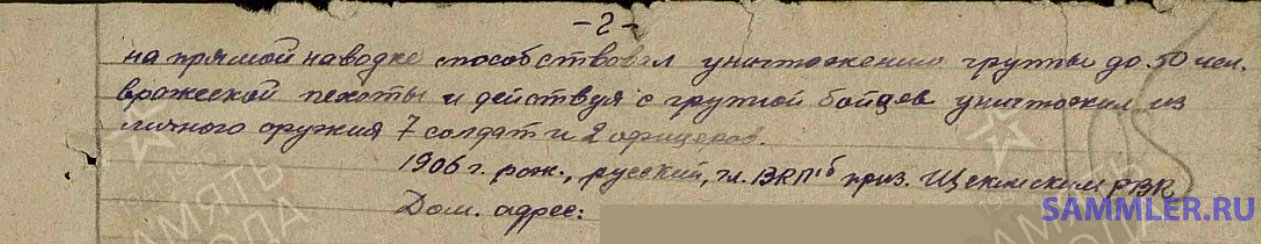 -2-
на прямой наводке способствовал уничтожению группы до 50 чел.
вражеской пехоты и действуя с группой бойцов уничтожил из
личного оружия 7 солдат и 2 офицеров.
1906 г. рож., русский, чл. ВКП/б приз. Щекинским РВК
Дом. адрес:
ПАМЯТЬ
НАРОДА
SAMMLER.RU